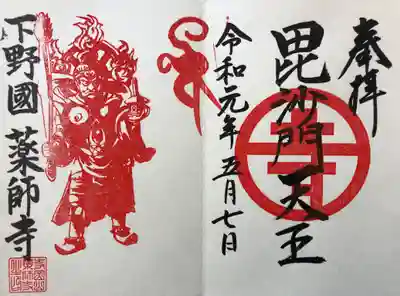 奉拝
毘沙門天王
令和元年五月七日
下野國 薬師寺